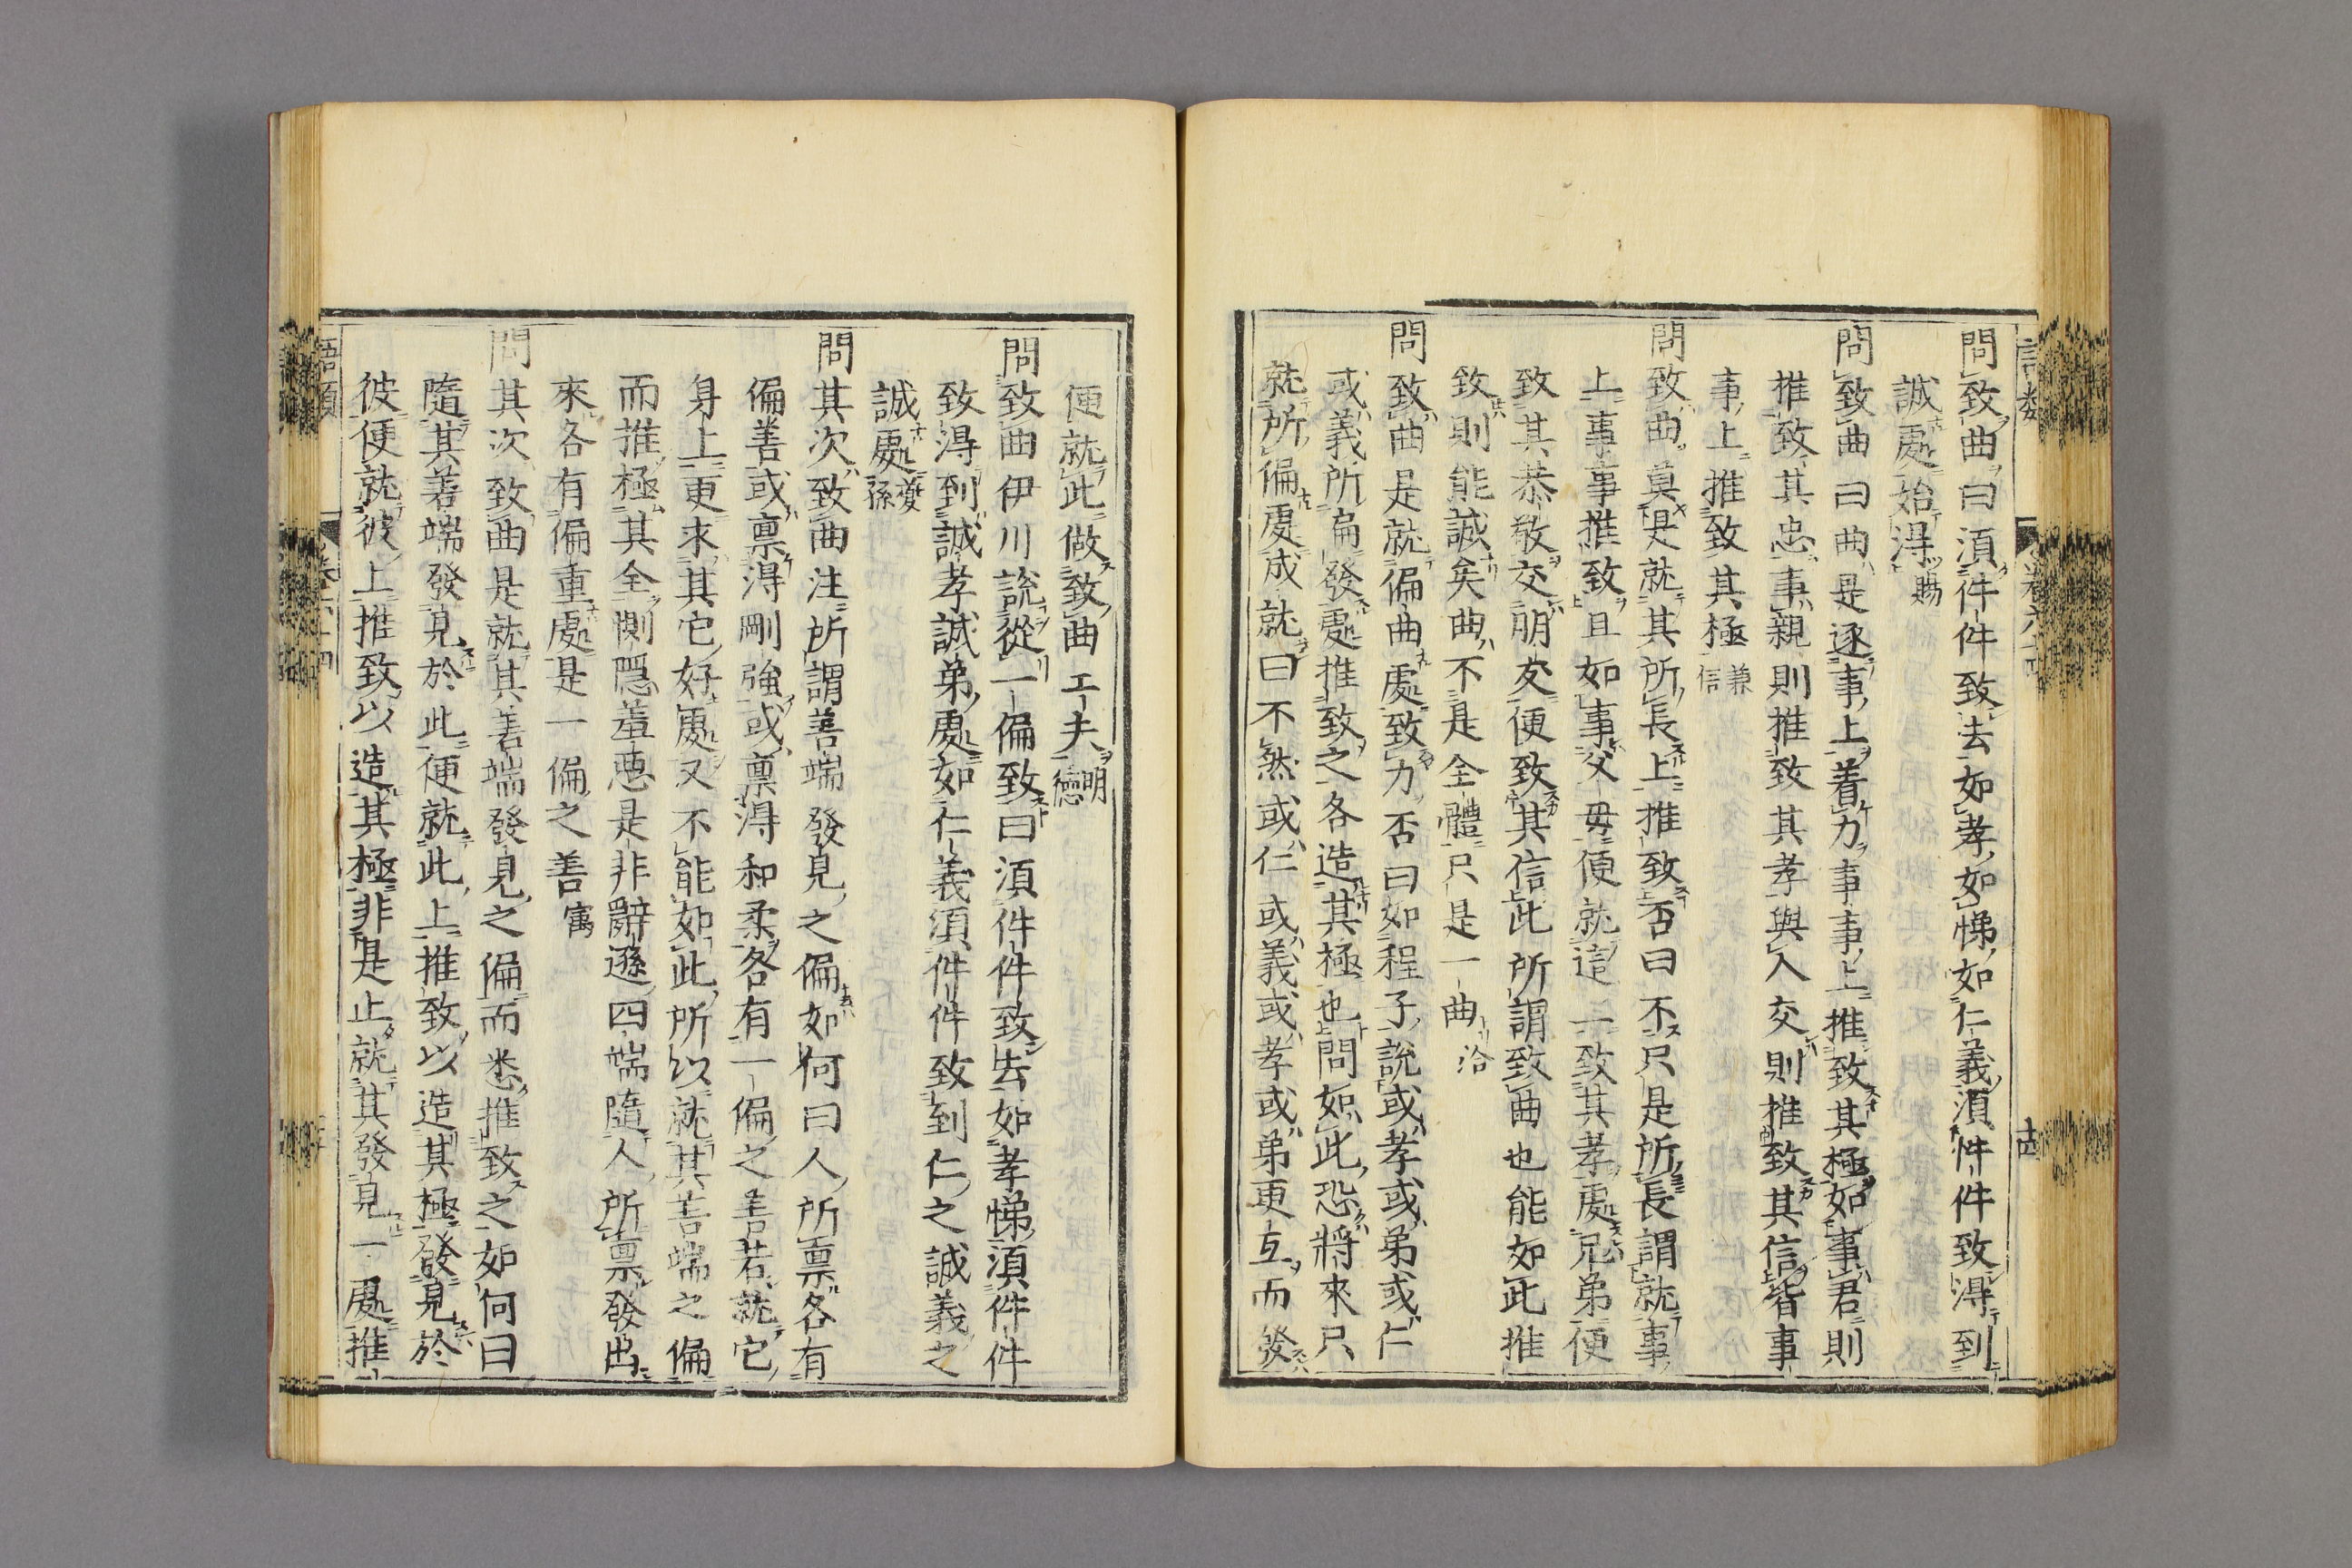 問致曲曰須件件致去如孝如悌如仁義須件件致得到
誠處始得賜
問致曲曰曲是逐事上着力事事上推致其極如事君則
推致其忠事親則推致其孝與人交則推致其信皆事
事上推致其極兼信
問致曲莫是就其所長上推致否曰不只是所長謂就事
上事事推致且如事父母便就這一致其孝處兄弟便
致其恭敬交朋友便致其信此所謂致曲也能如此推
致則能誠矣曲不是全體只是一曲洽
問致曲是就偏曲處致力否曰如程子說或孝或弟或仁
或義所偏發處推致之各造其極也問如此恐將來只
就所偏處成就曰不然或仁或義或孝或弟更互而發
便就此做致曲工夫明德
問致曲伊川說從一偏致曰須件件致去如孝悌須件件
致得到誠孝誠弟處如仁義須件件致到仁之誠義之
誠處夔孫
問其次致曲注所謂善端發見之偏如何曰人所禀各有
偏善或禀得剛強或禀得和柔各有一偏之善若就它
身上更求其它好處又不能如此所以就其善端之偏
而推極其全惻隱羞惡是非辭遜四端隨人所禀發出
來各有偏重處是一偏之善㝢
問其次致曲是就其善端發見之偏而悉推致之如何曰
隨其善端發見於此便就此上推致以造其極發見於
彼便就彼上推致以造其極非是止就其發見一處推